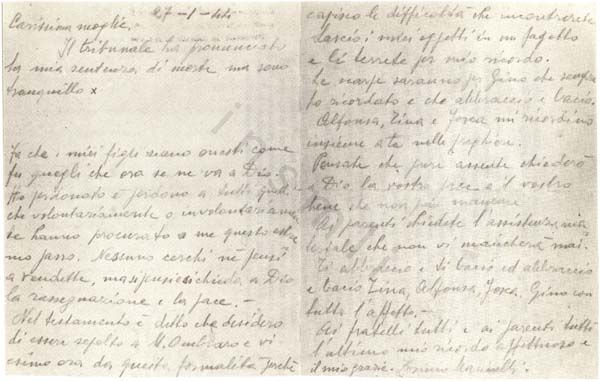 27-1-44
Carissima moglie,
Il tribunale ha pronunciato
la mia sentenza di morte ma sono
tranquillo x
Fa che i miei figli siano onesti come
fu quegli che ora se ne va a Dio.
Ho perdonato e perdono a tutti quelli
che volontariamente o involontariamen
te hanno procurato a me questo estre
mo passo. Nessuno cerchi nè pensi
a vendette, ma si chieda a Dio
la rassegnazione e la pace. -
Nel testamento è detto che desidero
di essere sepolto a M. Ombraro e vi
esimo ora da questa formalità perchè
capisco le difficoltà che incontrerete
Lascio i miei effetti in un fagotto
e li terrete per mio ricordo.
Le scarpe saranno per Gino che sempre
ho ricordato e che abbraccio e bacio.
Alfonsa, Zina e Josca mi ricordino
insieme a te nelle preghiere.
Pensate che pure assente chiederò
a Dio la vostra pace e il vostro
bene che non può mancare
Ai parenti chiedete l'assistenza
le tale che non vi mancherà mai.
Ti abbraccio e ti bacio ed abbraccio
e bacio Zina, Alfonsa, Josca, Gino con
tutto l'affetto. -
Ai fratelli tutti e ai parenti tutti
l'ultimo mio ricordo affettuoso e
il mio grazie.